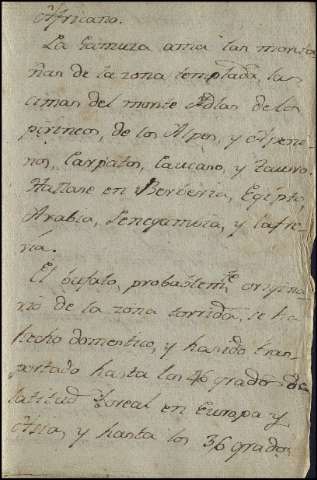 Africano.
La Gamuza ama las monta
ñas de la zona templada, las
cimas del monte Atlas de los
pirineos, de los Alpes, y Apeni-
nos, Carpatos, Caucaso, y Tauro.
Hallase en Berberia, Egipto,
Arabia, Senegambia, y Cafre
ría.
El bufalo, probablemte. origina
rio de la zona torrida, se ha
hecho domestico, y ha sido tras
portado hasta los 46 grados de
latitud boreal en Europa y
Asia, y hasta los 36 grados